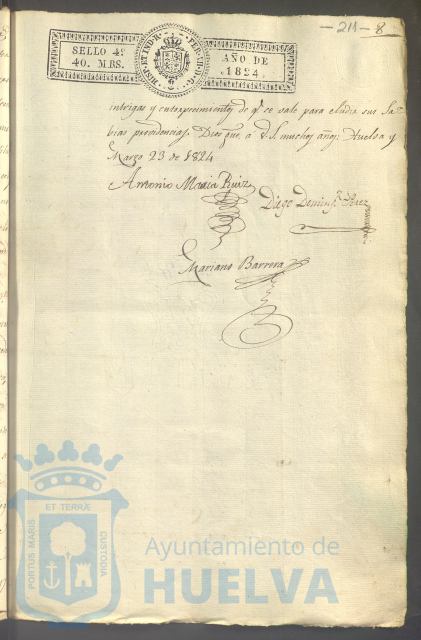 -211- 8
SELLO 4º
40. MRS.
HISP. ET IND. R. FERD. VII. D. G.
AÑO DE
1824.
intrigas y entorpecimientos de qe. se vale para eludir sus Sa-
bias providencias. Dios gue. a V.S. muchos años. Huelva y
Marzo 23 de 1824
Antonio Maria Ruiz
Diego Doming.z Perez
Mariano Barrera
ET TERRÆ
PORTUS MARIS
CUSTODIA
Ayuntamiento de
HUELVA